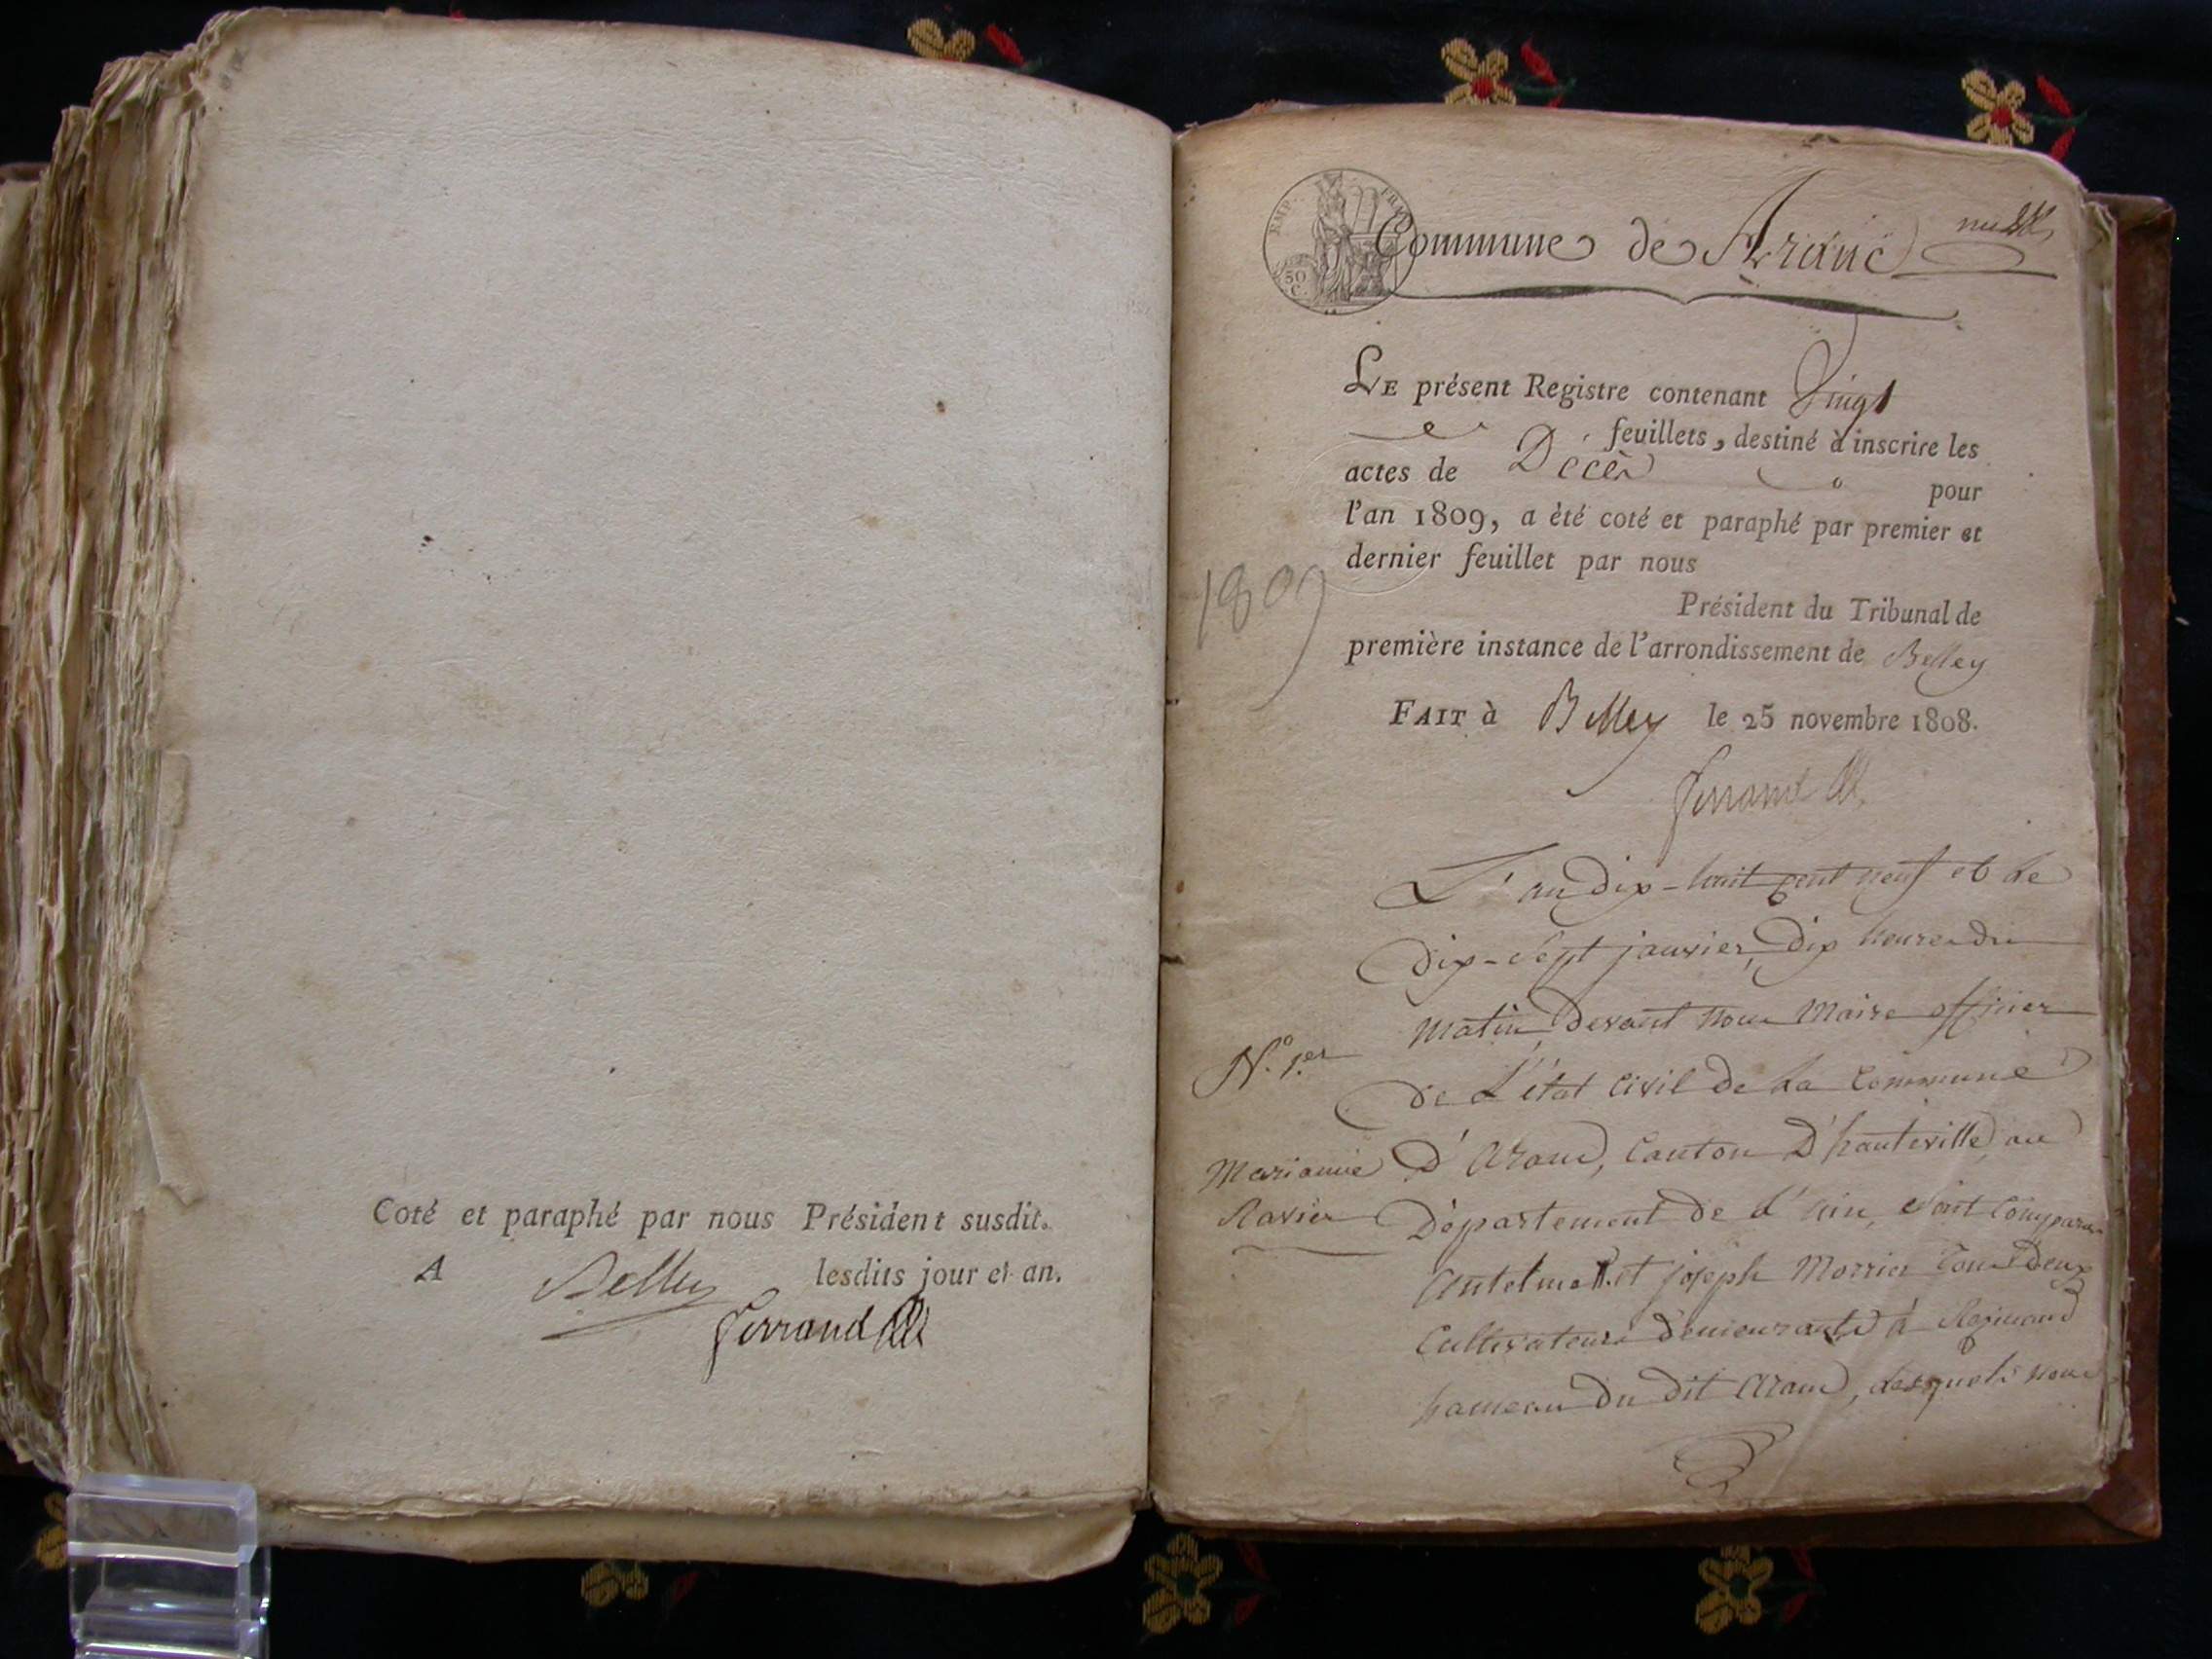 Coté et paraphé par nous Président susdit.
A Belley lesdits jour et an.
Ferrand
EMP. FRA
50 C.
Commune de Aranc
LE présent Registre contenant Vingt
feuillets, destiné à inscrire les
actes de Décès pour
l'an 1809, a été coté et paraphé par premier et
dernier feuillet par nous
1809
Président du Tribunal de
première instance de l'arrondissement de Belley
FAIT à Belley le 25 novembre 1808.
Ferrand
L'an dix-huit cent neuf et le
dix-sept janvier, dix heures du
matin, devant nous Maire officier
N.º 1.er
de L'état civil de La Commune
Marianne
D'Aranc, Canton D'hauteville, au
Ravier
Département de L'ain, sont comparus
Antelme et joseph Morrier tous deux
Cultivateurs demeurants à
hameau du dit Aranc, lesquels nous